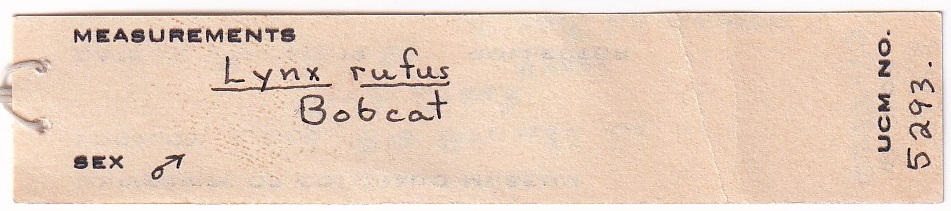 MEASUREMENTS
Lynx rufus
Bobcat
SEX ♂
UCM NO.
5293.